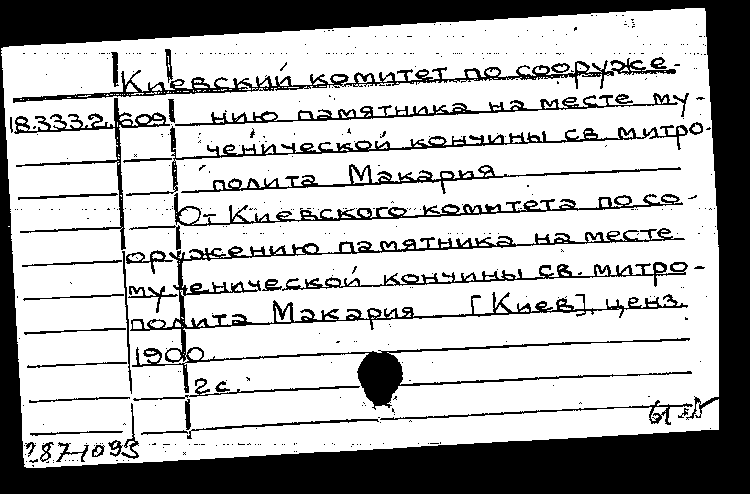 Киевский комитет по сооруже-
18.333.2.609 нию памятника на месте му-
ченической кончины св. митро-
полита Макария.
От Киевского комитета по со-
оружению памятника на месте
мученической кончины св. митро-
полита Макария [Киев], ценз.
1900.
2 с.
61
287-1093